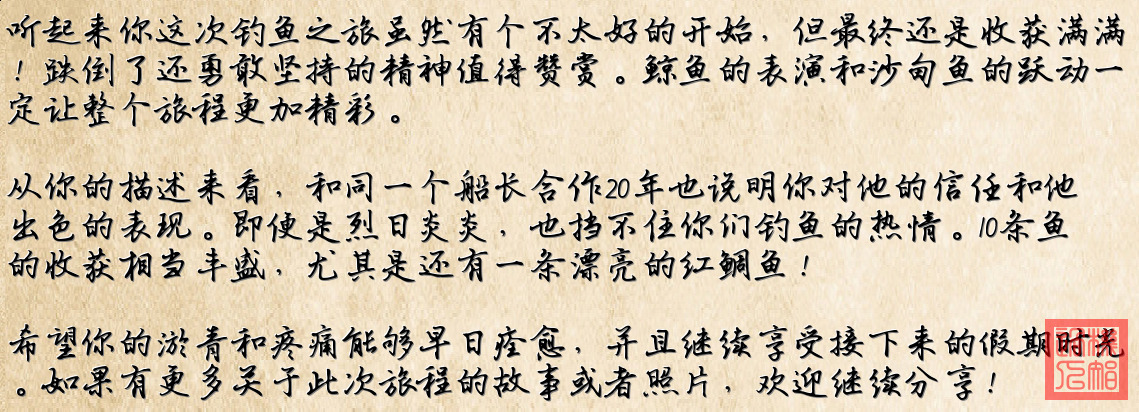 听起来你这次钓鱼之旅虽然有个不太好的开始，但最终还是收获满满
！跌倒了还勇敢坚持的精神值得赞赏。鲸鱼的表演和沙甸鱼的跃动一
定让整个旅程更加精彩。
从你的描述来看，和同一个船长合作20年也说明你对他的信任和他
出色的表现。即便是烈日炎炎，也挡不住你们钓鱼的热情。10条鱼
的收获相当丰盛，尤其是还有一条漂亮的红鲷鱼！
希望你的淤青和疼痛能够早日痊愈，并且继续享受接下来的假期时光
。如果有更多关于此次旅程的故事或者照片，欢迎继续分享！